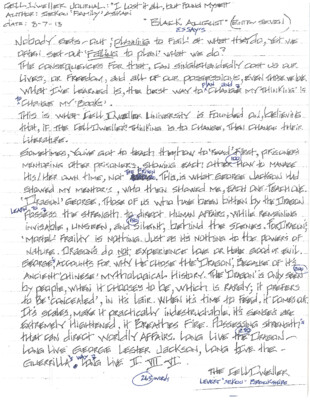 Cell-Dweller Journal: "I Lost it all, but Found Myself"
Author:
Date: 8-7-13
"Black August" (Entry Seven)
Essays
Nobody sets-out 'planning to fail' at what they do, yet we
often set-out 'failing to plan' what we do?
The consequences for that, can singlehandedly cost us our
lives, or freedom, and all of our possessions, even those we love.
What I've learned is, the best way to 'change my thinking' is
to 'change my books'.
This is what Cell Dweller University is founded on, believing
that, if the Cell Dweller thinking is to change, then change their
literature.
Sometimes, you've got to teach them how to 'read' first, prisoners
mentoring other prisoners, showing each other how to manage
his/her own time, not the prison. This, is what George Jackson had
showed my mentors, who then showed me, each one teach one.
'Dragon' George, those of us who have been bitten by the Dragon
possess the strength to direct human affairs, while remaining
invisible, unseen, and silent, behind the scenes. For Dragons,
'mortal' frailty is nothing. Just as it's nothing to the powers of
nature. Dragons do not experience love or hate, good or evil.
George, accounts for why he chose the Dragon, because of its
ancient 'Chinese' mythological history. The Dragon is only seen
by people, when it chooses to be, which is rarely; it prefers
to be 'concealed', in its lair. When it's time to feed, it comes out.
It's scales, make it practically indestructible. It's senses are
extremely heightened, it breathes fire. Possessing strength,
that can direct worldly affairs. Long live the Dragon —
Long live George Lester Jackson, long live the —
Guerrilla! Long live
The Cell Dweller